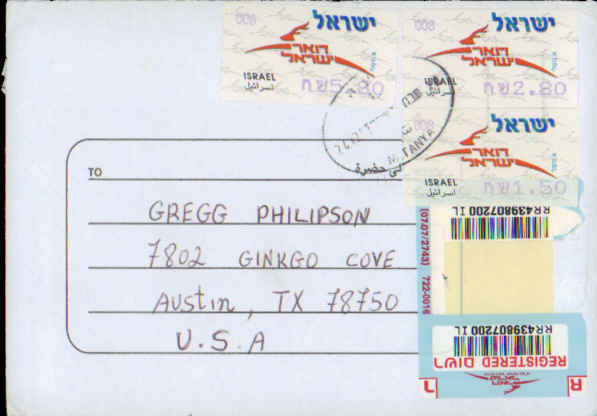 008
ישראל
דואר
ישראל
ISRAEL
اسرائيل
ש״ח 5.80
008
ישראל
דואר
ישראל
ISRAEL
اسرائيل
ש״ח 2.80
008
ישראל
דואר
ישראל
ISRAEL
اسرائيل
ש״ח 1.50
TO
GREGG PHILIPSON
7802 GINKGO COVE
AUSTIN, TX 78750
U.S.A
RR439807200 IL
(07.07/2743) 722-0016
RR439807200 IL
REGISTERED רשום
R
ר